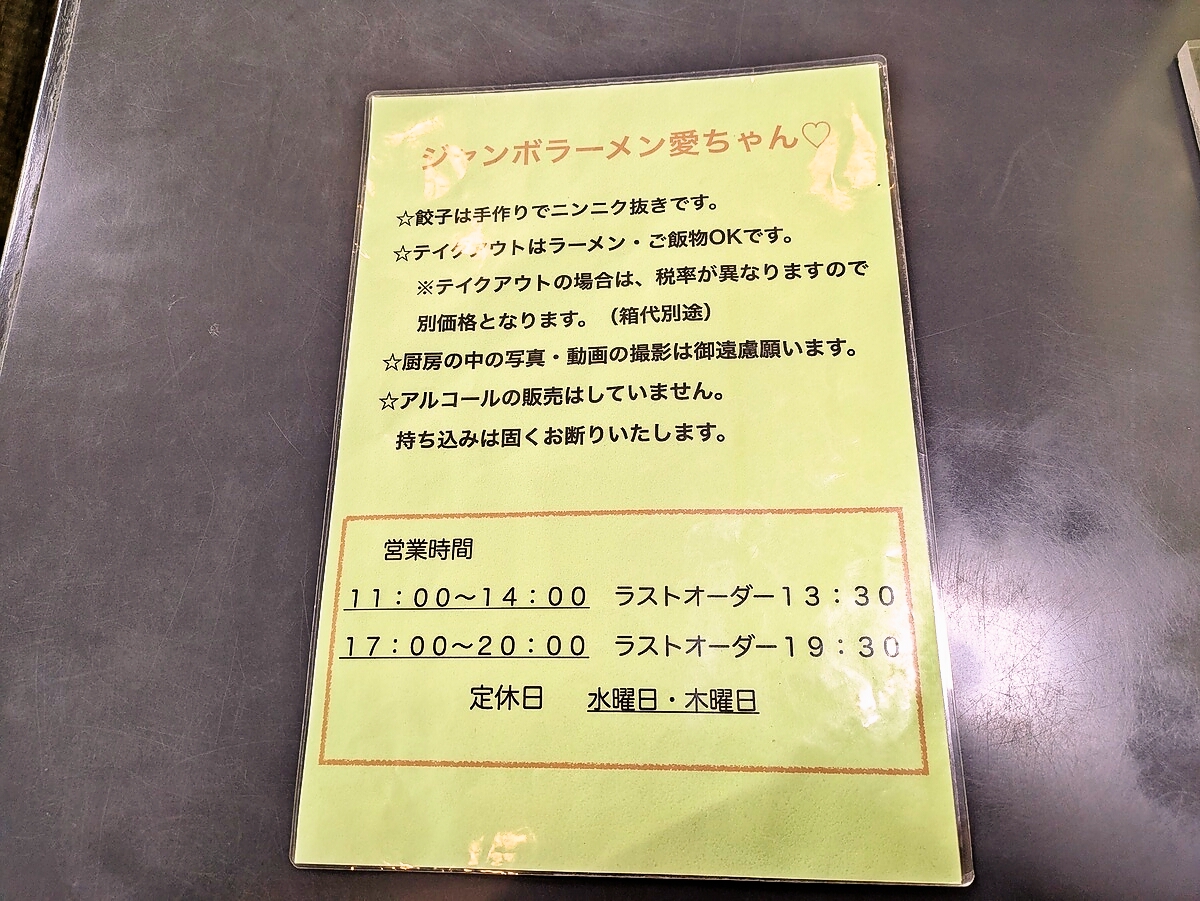 ジャンボラーメン愛ちゃん♡
☆餃子は手作りでニンニク抜きです。
☆テイクアウトはラーメン・ご飯物OKです。
※テイクアウトの場合は、税率が異なりますので
別価格となります。（箱代別途）
☆厨房の中の写真・動画の撮影は御遠慮願います。
☆アルコールの販売はしていません。
持ち込みは固くお断りいたします。
営業時間
１１：００～１４：００　ラストオーダー１３：３０
１７：００～２０：００　ラストオーダー１９：３０
定休日　水曜日・木曜日